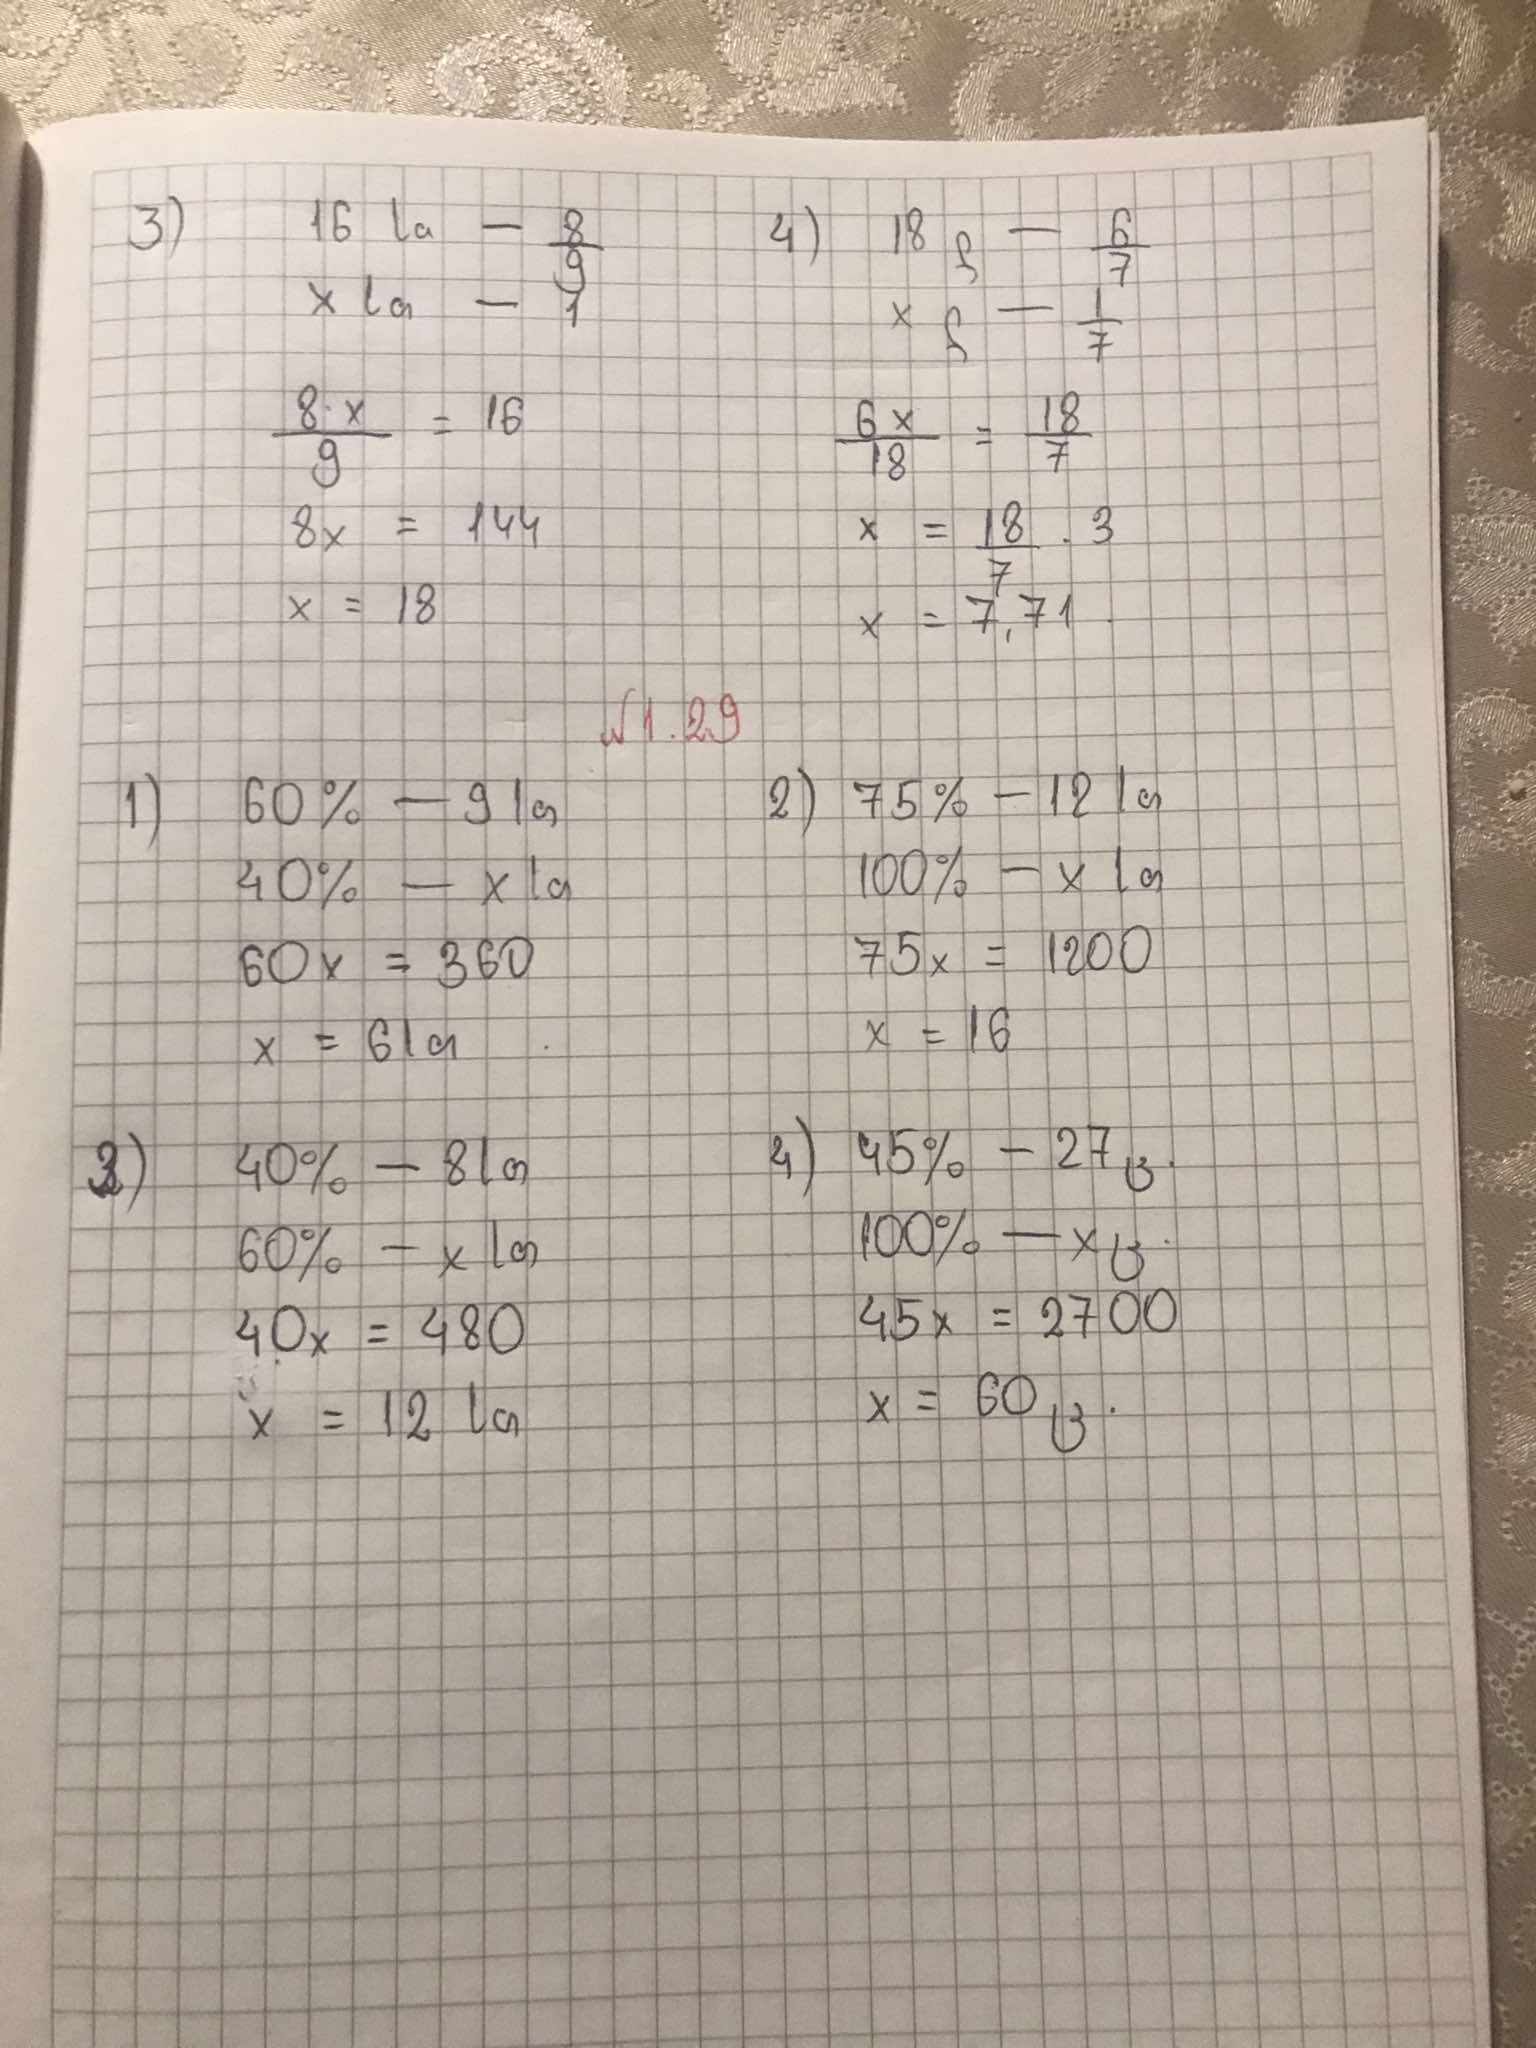 3) 16 სმ — 8/9
x სმ — 1
8·x/9 = 16
8x = 144
x = 18
4) 18 — 6/7
x — 1/7
6x/18 = 18/7
x = 18/7 · 3
x = 7,71
№1.29
1) 60% — 9 სმ
40% — x სმ
60x = 360
x = 6 სმ
2) 75% — 12 სმ
100% — x სმ
75x = 1200
x = 16
3) 40% — 8 სმ
60% — x სმ
40x = 480
x = 12 სმ
4) 45% — 27
100% — x
45x = 2700
x = 60